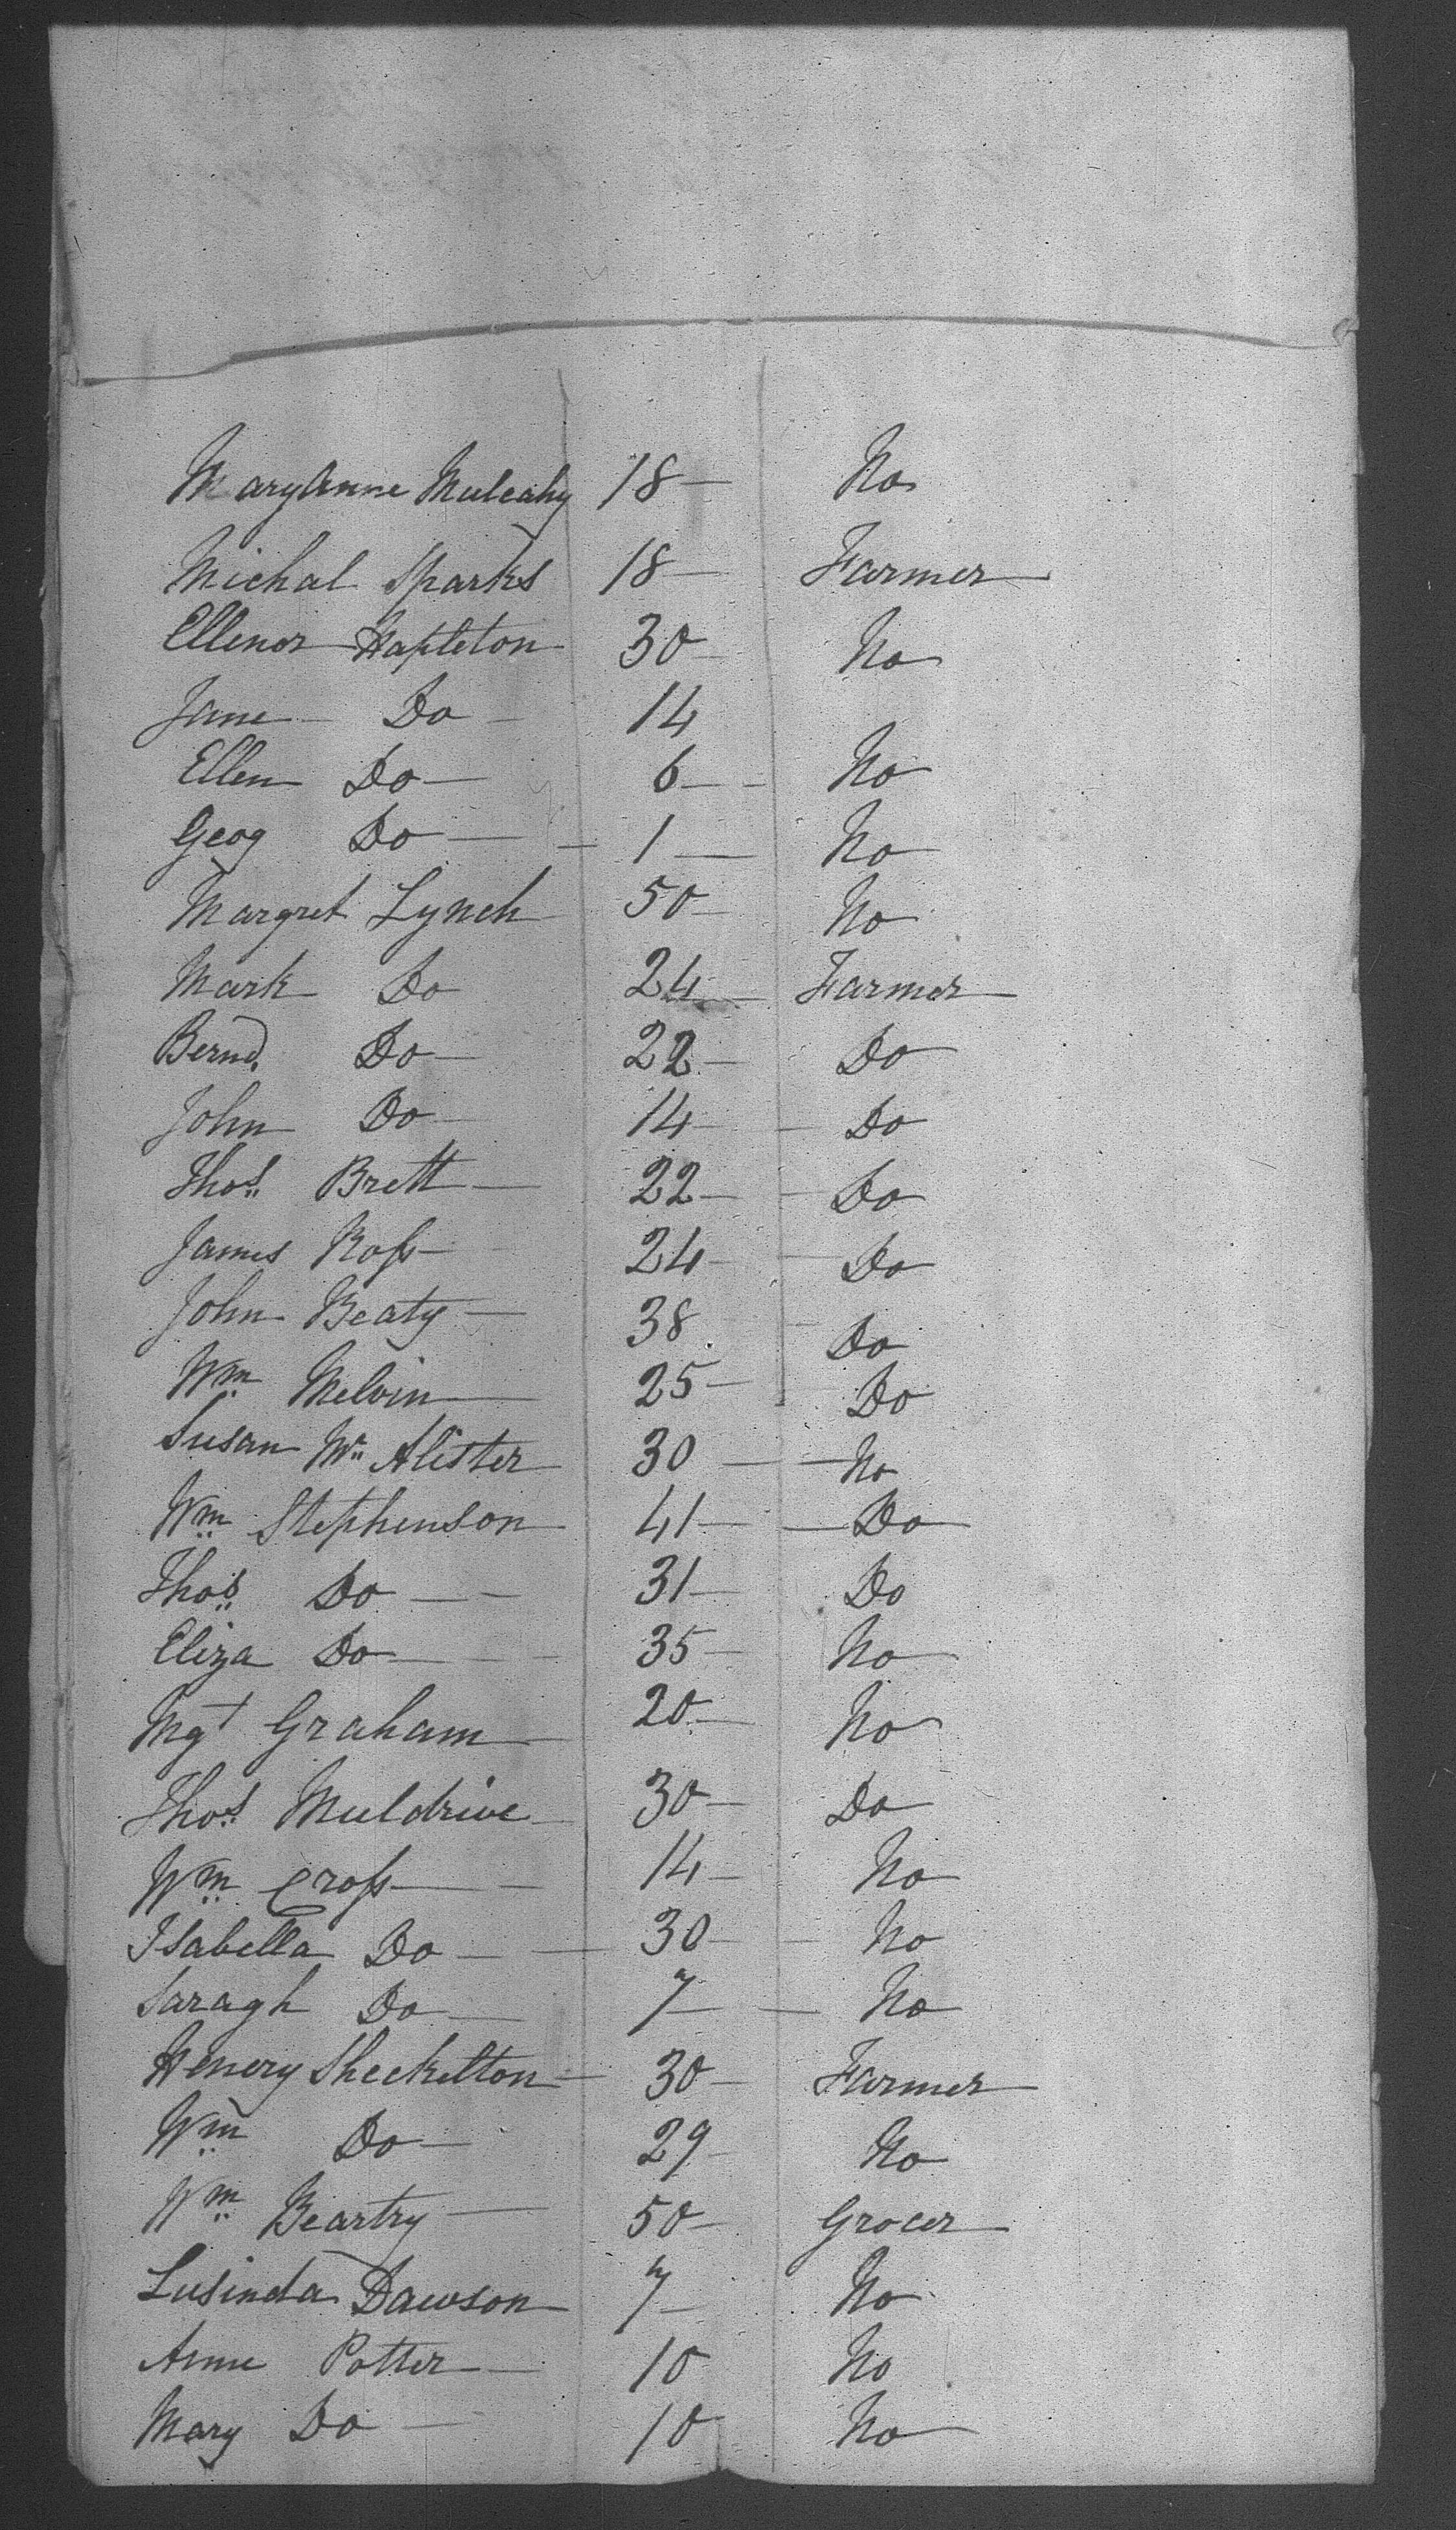 Mary Anne Mulcahy 18 — No
Michal Sparks 18 — Farmer
Ellenor Hapleton 30 — No
Jane — Do — 14
Ellen Do — 6 — No
Geog Do — 1 — No
Margret Lynch 50 — No
Mark Do 24 — Farmer
Bernd. Do — 22 — Do
John Do — 14 — Do
Thos. Brett — 22 — Do
James Ross — 24 — Do
John Beaty — 38 Do
Wm Melvin — 25 — Do
Susan Mc Alister 30 — No
Wm Stephenson 41 — Do
Thos. Do — 31 — Do
Eliza Do — 35 — No
Mgt Graham — 20 — No
Thos. Muldrive 30 — Do
Wm Cross — 14 — No
Isabella Do — 30 — No
Saragh Do — 7 — No
Henery Sheckelton — 30 — Farmer
Wm Do — 29 — No
Wm Beartry — 50 — Grocer
Lusinda Dawson 7 — No
Anne Potter — 10 No
Mary Do — 10 No